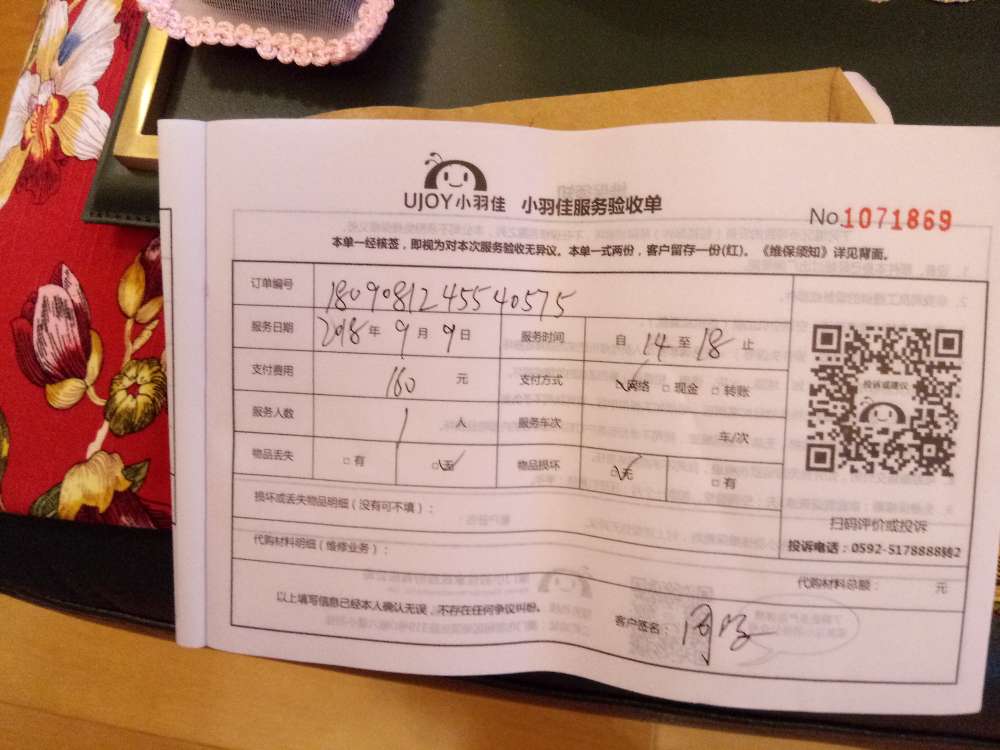 UJOY小羽佳 小羽佳服务验收单
No.1071869
本单一经核签，即视为对本次服务验收无异议。本单一式两份，客户留存一份(红)。《维保须知》详见背面。
订单编号 180908124554 0575
服务日期 2018年9月9日 服务时间 自14至18止
支付费用 160元 支付方式 ☑网络 □现金 □转账
服务人数 1人 服务车次 车/次
物品丢失 □有 ☑无 物品损坏 ☑无 □有
投诉或建议
损坏或丢失物品明细（没有可不填）：
扫码评价或投诉
代购材料明细（维修业务）：
投诉电话：0592-5178888转2
代购材料总额： 元
以上填写信息已经本人确认无误，不存在任何争议纠纷。
客户签名：